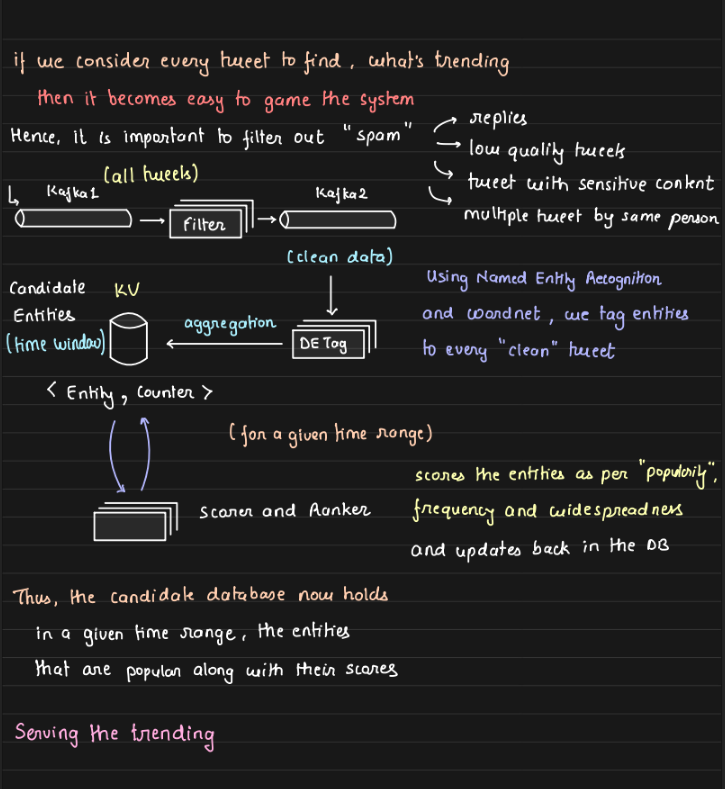 if we consider every tweet to find, what's trending
then it becomes easy to game the system
Hence, it is important to filter out "spam"
replies
low quality tweets
tweet with sensitive content
multiple tweet by same person
(all tweets)
Kafka1
Filter
Kafka2
(clean data)
Candidate
Entities
(time window)
KV
aggregation
DE Tag
Using Named Entity Recognition
and wordnet, we tag entities
to every "clean" tweet
< Entity, Counter >
(for a given time range)
Scorer and Ranker
scores the entities as per "popularity",
frequency and widespreadness
and updates back in the DB
Thus, the candidate database now holds
in a given time range, the entities
that are popular along with their scores
Serving the trending